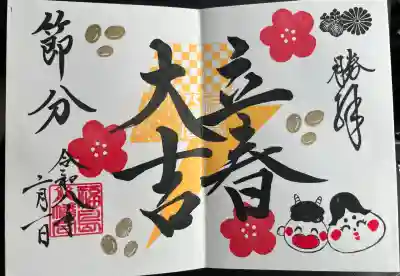 勝拝
立春
大吉
節分
令和八年
二月一日